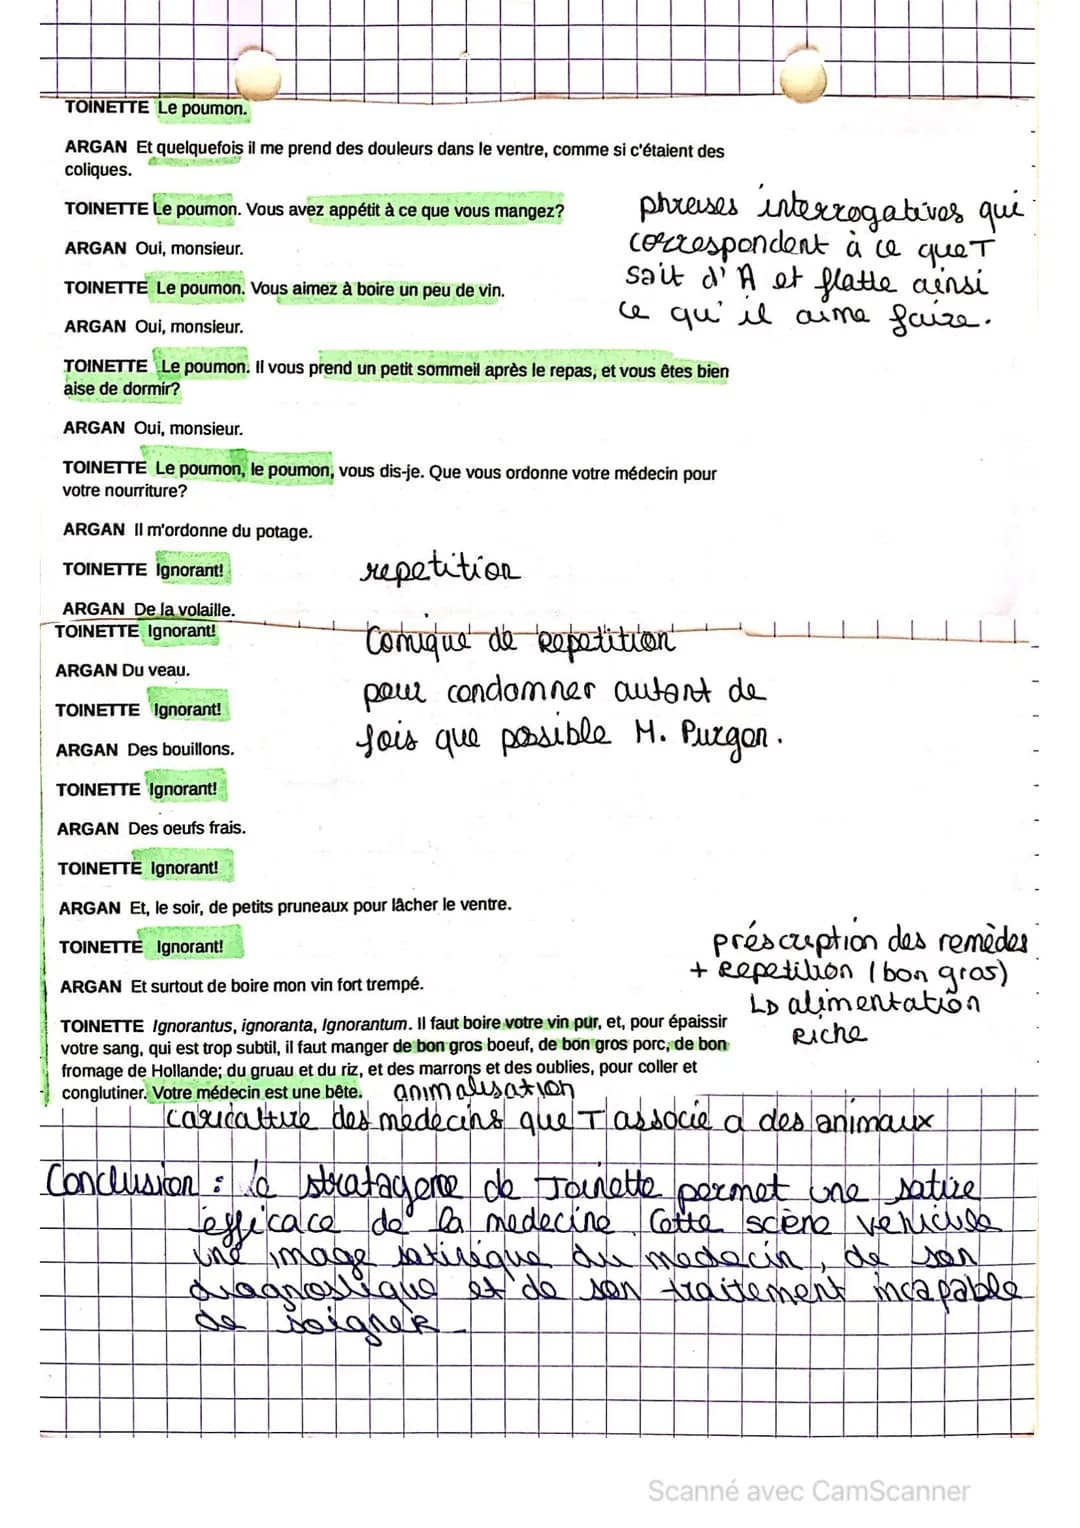 TOINETTE Le poumon.
ARGAN Et quelquefois il me prend des douleurs dans le ventre, comme si c'étaient des
coliques.
TOINETTE Le poumon. Vous avez appétit à ce que vous mangez?
phrases interrogatives qui
correspondent à ce que T
sait d'A et flatte ainsi
ce qu'il aime faire.
ARGAN Oui, monsieur.
TOINETTE Le poumon. Vous aimez à boire un peu de vin.
ARGAN Oui, monsieur.
TOINETTE Le poumon. Il vous prend un petit sommeil après le repas, et vous êtes bien
aise de dormir?
ARGAN Oui, monsieur.
TOINETTE Le poumon, le poumon, vous dis-je. Que vous ordonne votre médecin pour
votre nourriture?
ARGAN Il m'ordonne du potage.
TOINETTE Ignorant!
repetition
ARGAN De la volaille.
TOINETTE Ignorant!
Comique de Repetition
pour condamner autant de
fois que possible M. Purgon.
ARGAN Du veau.
TOINETTE Ignorant!
ARGAN Des bouillons.
TOINETTE Ignorant!
ARGAN Des oeufs frais.
TOINETTE Ignorant!
ARGAN Et, le soir, de petits pruneaux pour lâcher le ventre.
TOINETTE Ignorant!
préscription des remèdes
+ Repetition (bon gros)
L> alimentation
Riche
ARGAN Et surtout de boire mon vin fort trempé.
TOINETTE Ignorantus, ignoranta, Ignorantum. Il faut boire votre vin pur, et, pour épaissir
votre sang, qui est trop subtil, il faut manger de bon gros boeuf, de bon gros porc, de bon
fromage de Hollande; du gruau et du riz, et des marrons et des oublies, pour coller et
conglutiner. Votre médecin est une bête.
animalisation
caricature des medecins que T associe a des animaux
Conclusion : le stratageme de Toinette permet une satire
efficace de la medecine. Cette scène vehicule
une image satirique du medecin, de son
diagnostique et de son traitement incapable
de soigner.
Scanné avec CamScanner